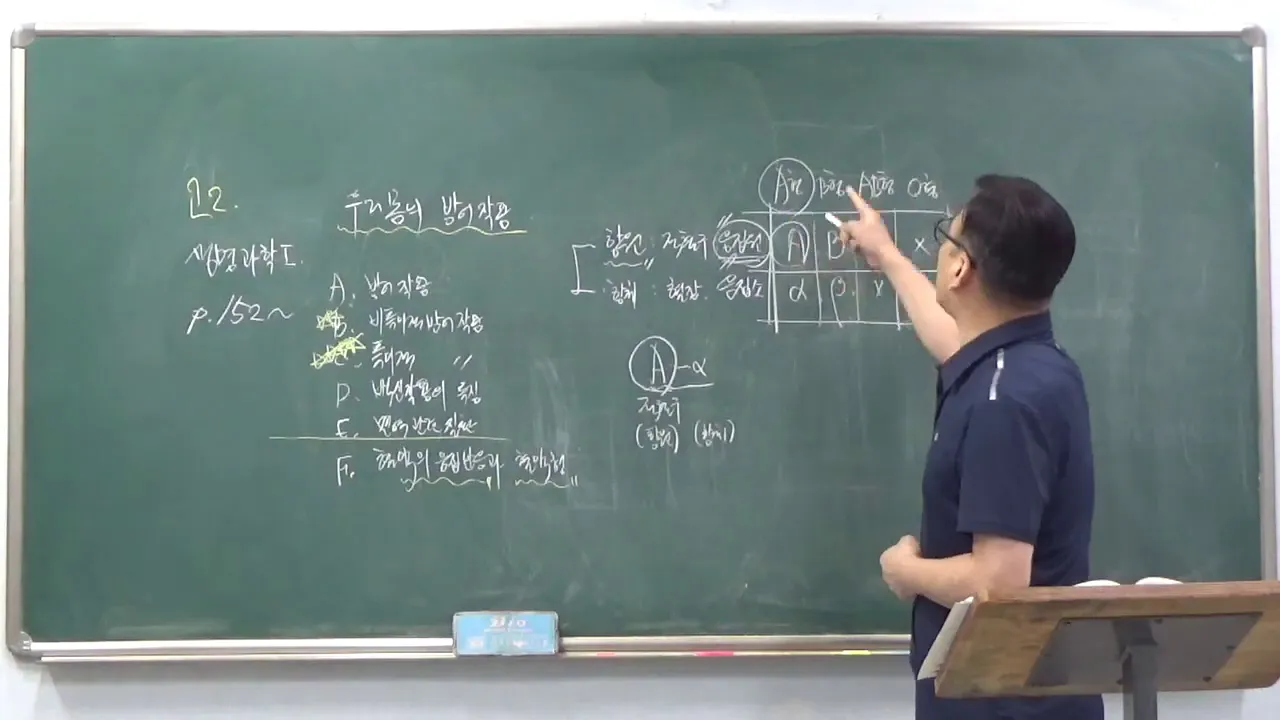 12.
생명과학 I.
p.152~
우리몸의 방어작용
A. 방어작용
B. 비특이적 방어작용
C. 특이적 〃
D. 백신작용의 특징
E. 면역 관련 질환
F. 혈액의 응집반응과 혈액형
A형 B형 AB형 O형
항원 : 적혈구 응집원 A B x
항체 : 혈장. 응집소 α β x
A - α
적혈구
(항원) (항체)